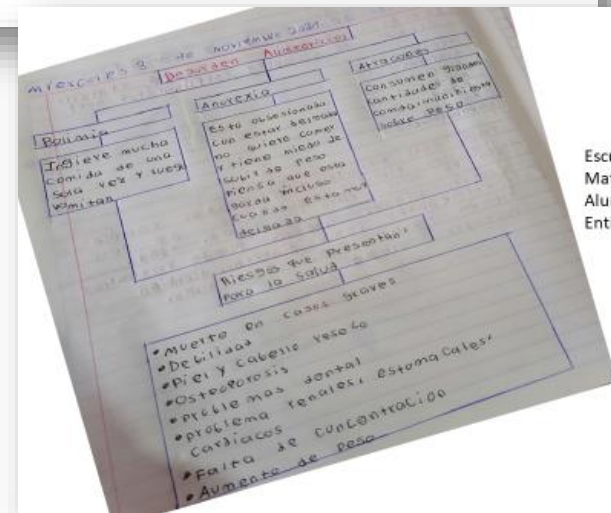 Miercoles de noviembre 2021.
Desorden Alimenticios
Bulimia
Ingiere mucha
comida de una
sola vez y luego
vomitan
Anorexia
Está obsesionada
con estar delgada
no quiere comer
y tiene miedo de
subir de peso
piensa que esta
gorda incluso
cuando esta muy
delgada
Atracones
Consumen grandes
cantidades de
comida
sobre peso
Riesgos que presentan
para la salud
•Muerte en casos graves
•Debilidad
•Piel y cabello reseco
•Osteoporosis
•problemas dental
•problema renales, estomacales,
cardiacos
•Falta de concentración
•Aumento de peso
Escr
Mat
Alu
Ent